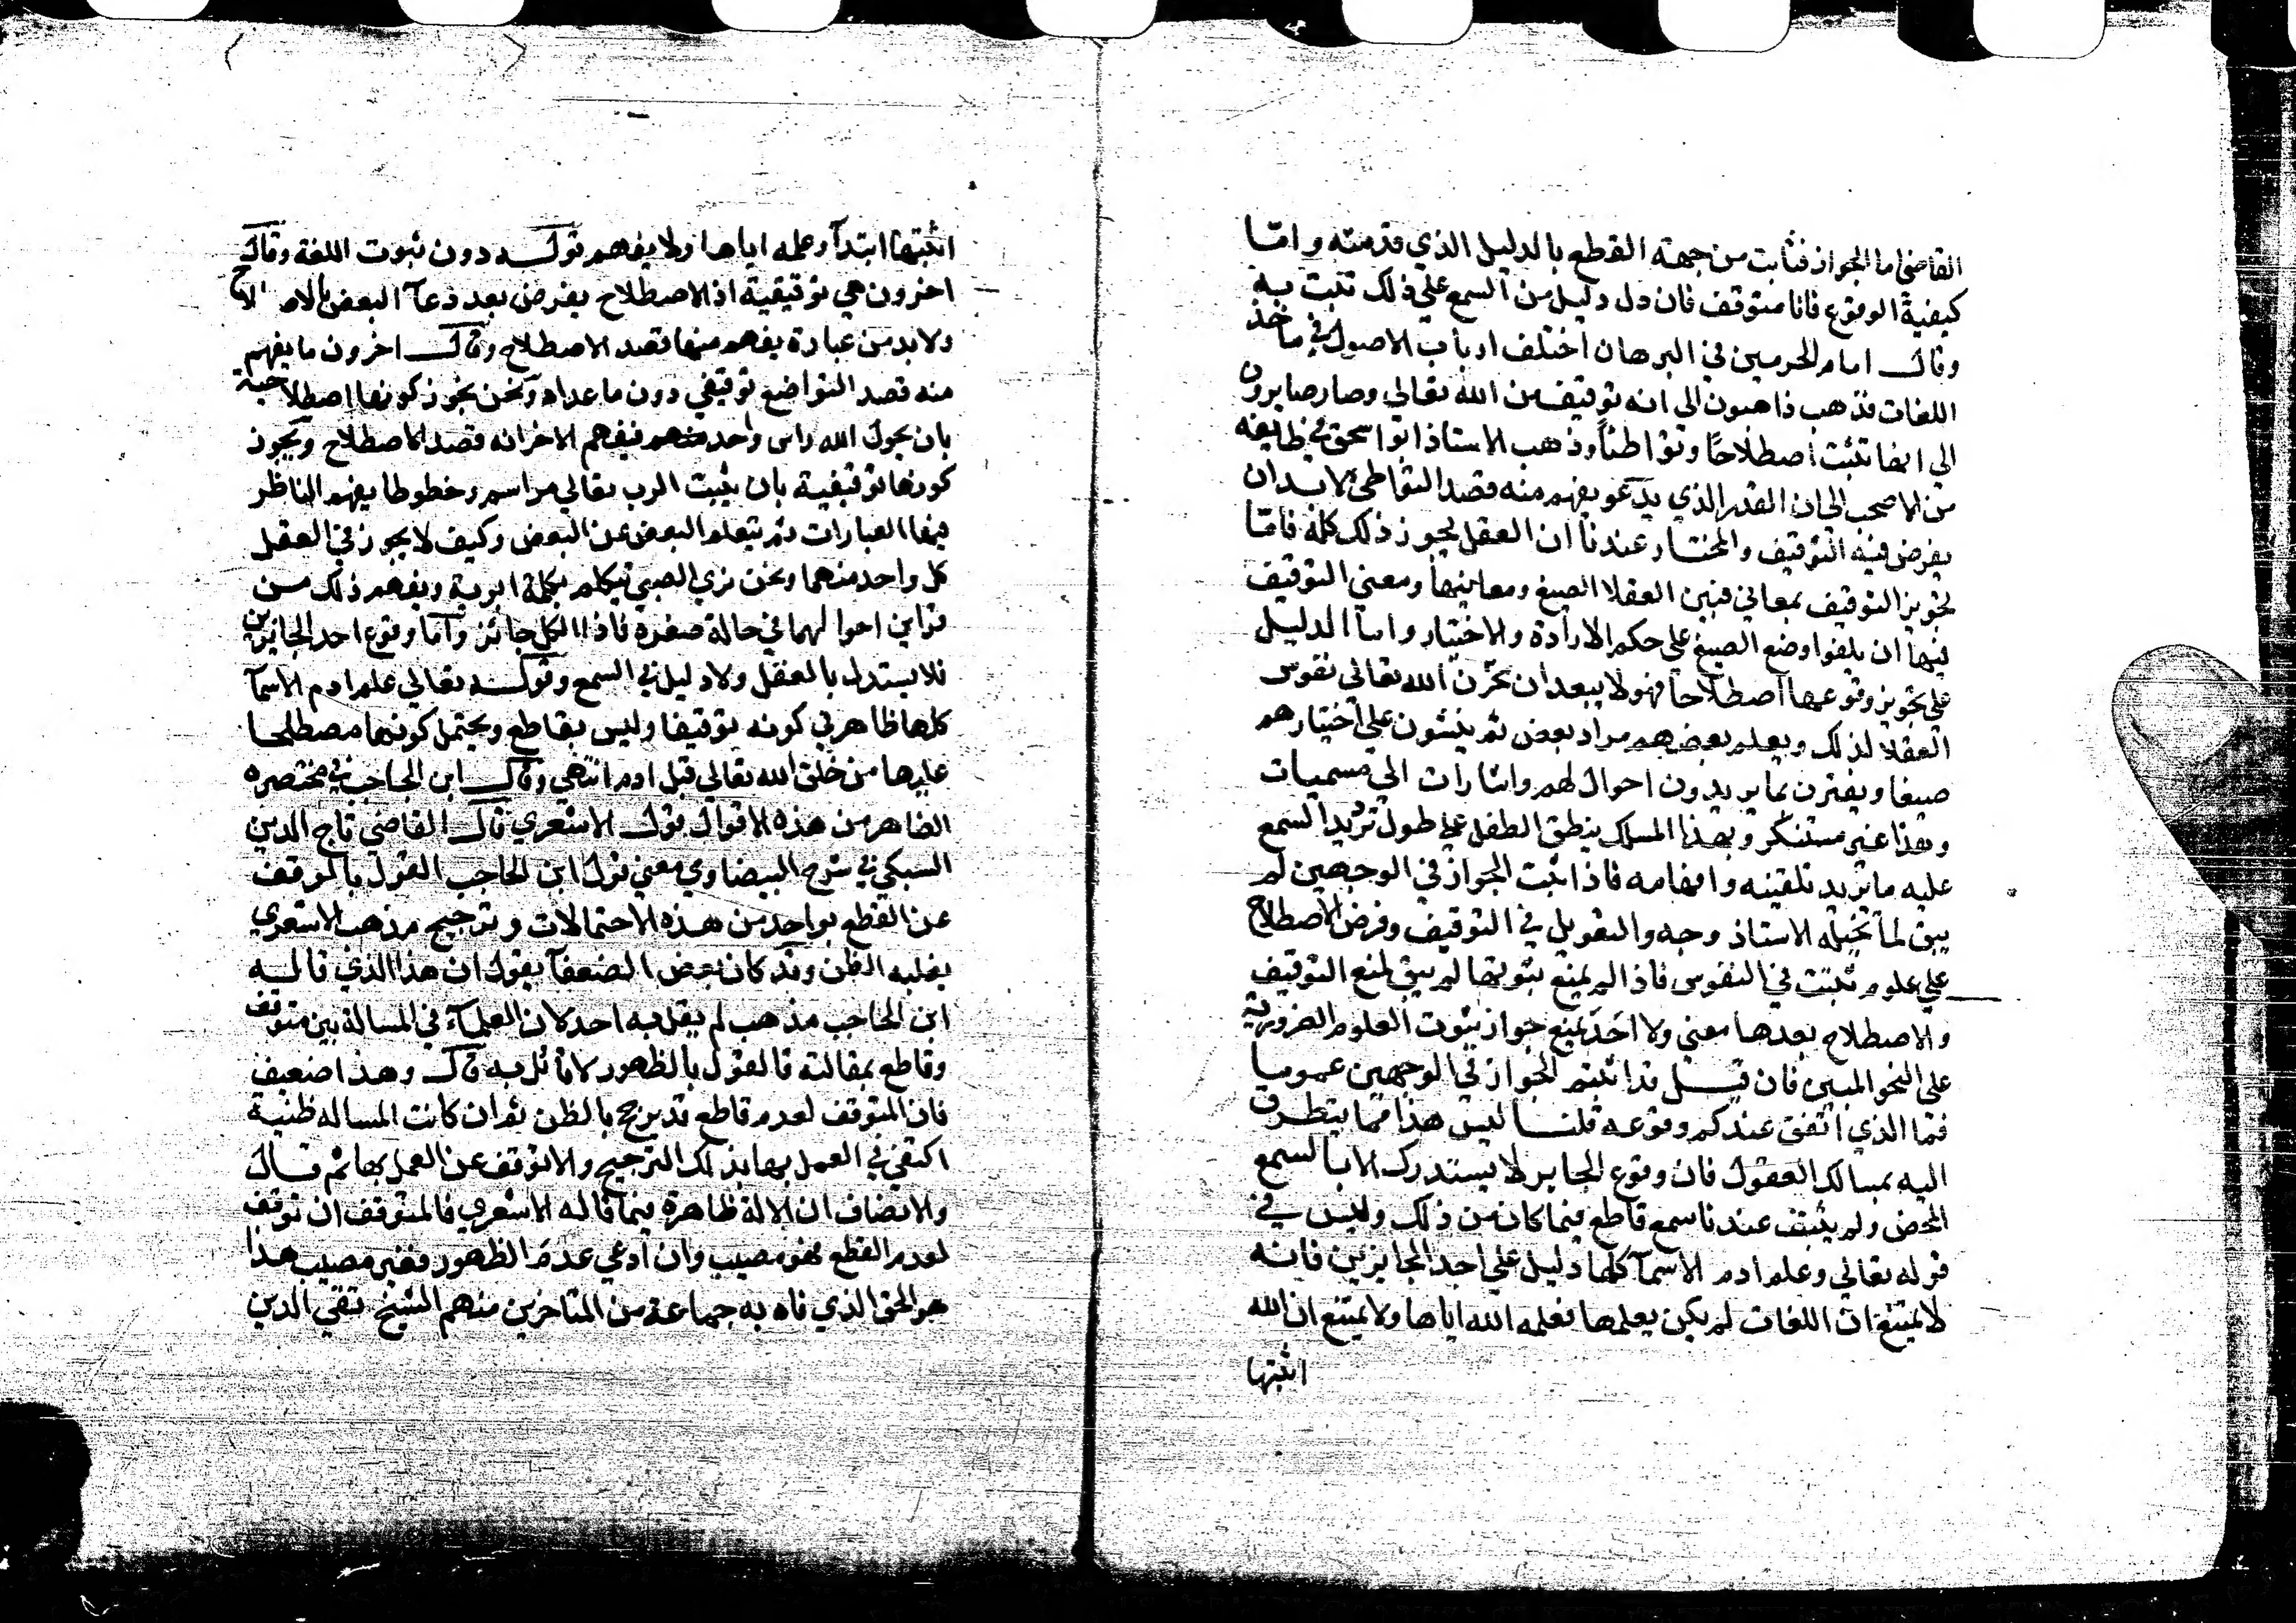 القاضي اما الجواز فثابت من جهة القطع بالدليل الذي قدمته واما
كيفية الوقوع فانا متوقف فان دل دليل من السمع علي ذلك ثبت به
وقال امام الحرمين في البرهان اختلف ارباب الاصول في ماخذ
اللغات فذهب ذاهبون الي انه توقيف من الله تعالي وصار صايرون
الي انها تثبت اصطلاحًا وتواطئًا وذهب الاستاذ ابواسحق في طايفه
من الاصحب الي ان القدر الذي يدعو يفهم منه قصد التواطئ لابد ان
يفرض فيه التوقيف والمختار عندنا ان العقل يجوز ذلك كله فاما
تجويز التوقيف بمعاني فتبين العقلا الصيغ ومعانيها ومعني التوقيف
فيها ان يلقوا وضع الصيغ علي حكم الارادة والاختيار واما الدليل
علي تجويز وقوعها اصطلاحا فهو لا يبعد ان يحرك الله تعالي نفوس
العقلا لذلك ويعلم بعضهم مراد بعض ثم ينشون علي اختيارهم
صيغا ويقترن بما يريدون احوال لهم واشارات الي مسميات
وهذا غير مستنكر وبهذا المسلك ينطق الطفل علي طول ترديد السمع
عليه ما يريد تلقينه وافهامه فاذا ثبت الجواز في الوجهين لم
يبق لما تخيله الاستاذ وجه والتعويل في التوقيف وفرض الاصطلاح
علي علوم تثبت في النفوس فاذا لم يمنع ثبوتها لم يبق لمنع التوقيف
والاصطلاح بعدها معني ولا احد يمنع جواز ثبوت العلوم الضرورية
علي النحو المبين فان قيل قد اثبتم الجواز في الوجهين عموما
فما الذي اتفق عندكم وقوعه قلنا ليس هذا مما يتطرق
اليه بمسالك العقول فان وقوع الجايز لا يستدرك الا بالسمع
المحض ولم يثبت عندنا سمع قاطع فيما كان من ذلك وليس في
قوله تعالي وعلم ادم الاسما كلها دليل علي احد الجايزين فانه
لا يمتنع ان اللغات لم يكن يعلمها فعلمه الله اياها ولا يمتنع ان الله
اثبتها
اثبتها ابتدا وعلمه اياها ولا يفهم قوله دون ثبوت اللغة وقال
اخرون هي توقيفية اذ الاصطلاح يفرض بعد دعا البعض بالاصطلاح
ولا بد من عبارة يفهم منها قصد الاصطلاح وقال اخرون ما يفهم
منه قصد التواضع توقيفي دون ما عداه ونحن نجوز كونها اصطلاحية
بان يحرك الله راس واحد منهم فيفهم الاخر انه قصد الاصطلاح ويجوز
كونها توقيفية بان يثبت الرب تعالي مراسم وخطوطا يفهم الناظر
فيها العبارات ثم يتعلم البعض عن البعض وكيف لا يجوز في العقل
كل واحد منهما ونحن نري الصبي يتكلم بكلمة ابويه ويفهم ذلك من
قراين احوالهما في حالة صغره فاذا الكل جائز واما وقوع احد الجايزين
فلا يستدرك بالعقل ولا دليل في السمع وقوله تعالي علم ادم الاسما
كلها ظاهر في كونه توقيفا وليس بقاطع ويحتمل كونها مصطلحا
عليها من خلق الله تعالي قبل ادم انتهي وقال ابن الحاجب في مختصره
الظاهر من هذه الاقوال قول الاشعري قال القاضي تاج الدين
السبكي في شرح البيضاوي معني قول ابن الحاجب القول بالوقف
عن القطع بواحد من هذه الاحتمالات وترجيح مذهب الاشعري
بغلبه الظن وقد كان بعض الضعفا يقول ان هذا الذي قاله
ابن الحاجب مذهب لم يقل به احد لان العلماء في المسالة بين متوقف
وقاطع بمقالته فالقول بالظهور لا قائل به قال وهذا ضعيف
فان المتوقف لعدم قاطع قد يرجح بالظن ثم ان كانت المساله ظنية
اكتفي في العمل بها بذلك الترجيح والا توقف عن العمل بها ثم قال
والانصاف ان الادلة ظاهرة فيما قاله الاشعري فالمتوقف ان توقف
لعدم القطع فهو مصيب وان ادعي عدم الظهور فغير مصيب هذا
هو الحق الذي فاه به جماعة من المتاخرين منهم الشيخ تقي الدين